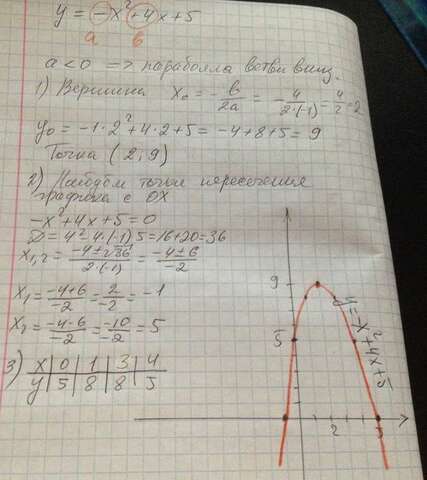 y = -x²+4x+5
a в
a<0 => парабола ветви вниз.
1) Вершина x₀ = -в/2a = -4/2·(-1) = 4/2 = 2
y₀ = -1·2²+4·2+5 = -4+8+5 = 9
Точка (2;9)
2) Найдём точки пересечения
графика с OX
-x²+4x+5=0
D = 4²-4·(-1)5 = 16+20 = 36
x₁,₂ = -4±√36/2·(-1) = -4±6/-2
x₁ = -4+6/-2 = 2/-2 = -1
x₂ = -4-6/-2 = -10/-2 = 5
3) x | 0 | 1 | 3 | 4
y | 5 | 8 | 8 | 5
9
5
2 5
y=-x²+4x+5